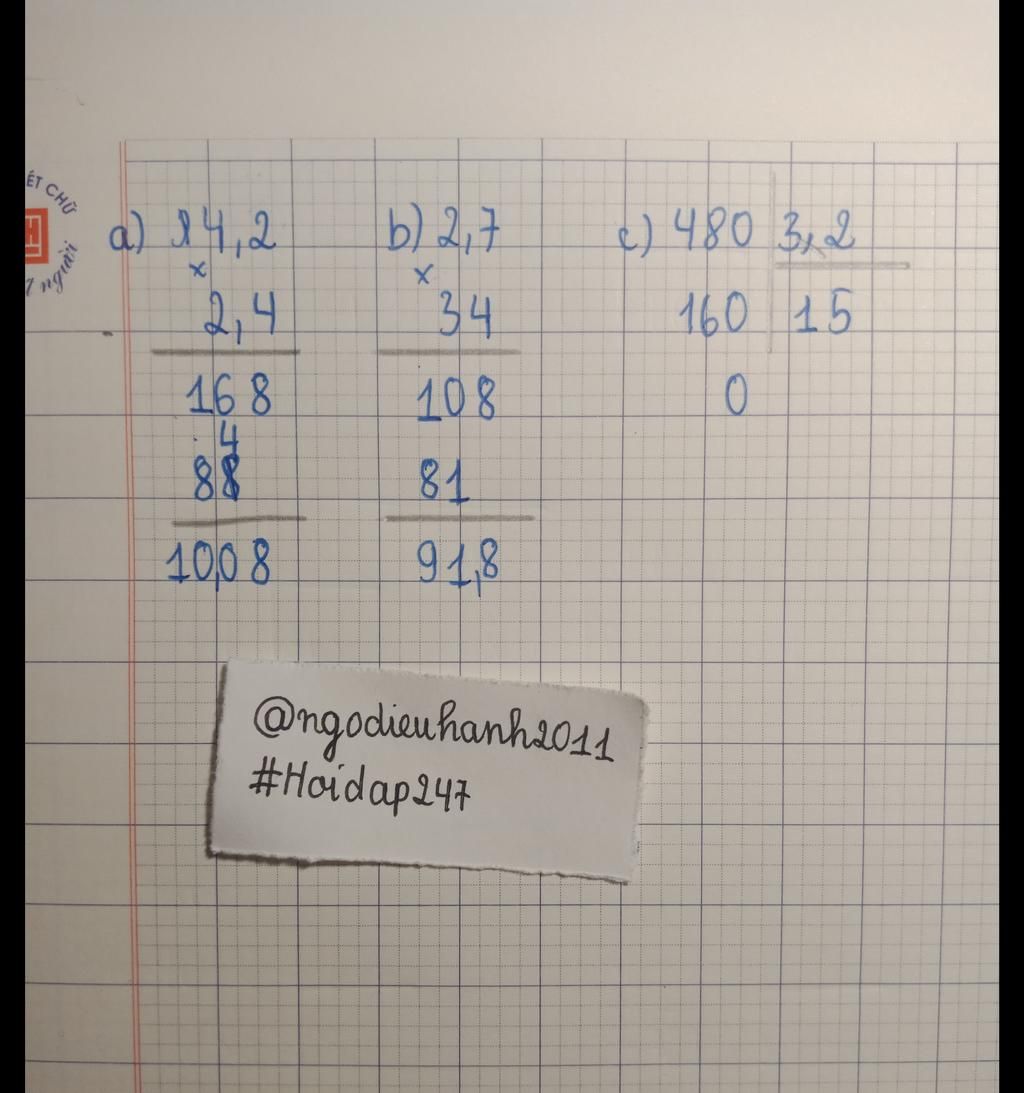 ẾT CHỮ
người
a) 4,2
x
2,4
168
84
10,08
b) 2,7
x
34
108
81
91,8
c) 480 3,2
160 15
0
@ngodieuhanh2011
#Hoidap247